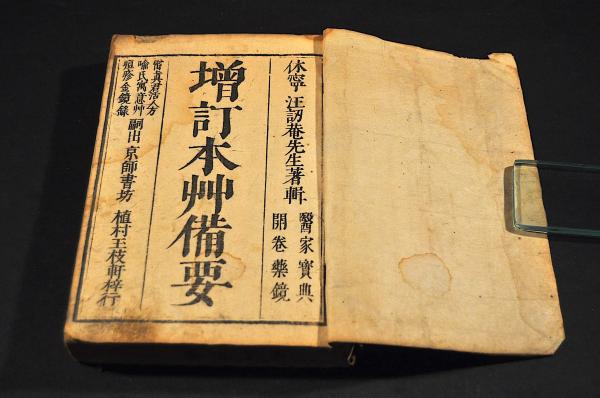 休寧 汪訒菴先生著輯
醫家寶典
開卷藥鏡
增訂本艸備要
真君活人方
喻氏寓意艸
痘疹金鏡錄
嗣出 京師書坊 植村玉枝軒梓行